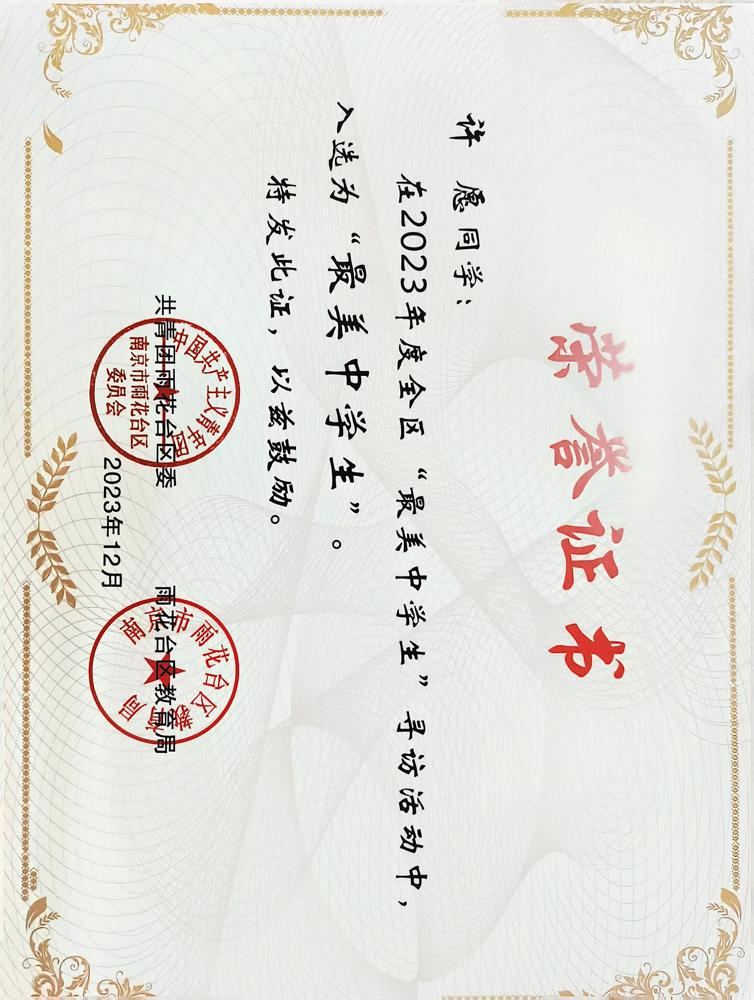 荣誉证书
许愿同学：
在2023年度全区“最美中学生”寻访活动中，
入选为“最美中学生”。
特发此证，以兹鼓励。
共青团雨花台区委
雨花台区教育局
2023年12月
中国共产主义青年团
南京市雨花台区
委员会
南京市雨花台区教育局